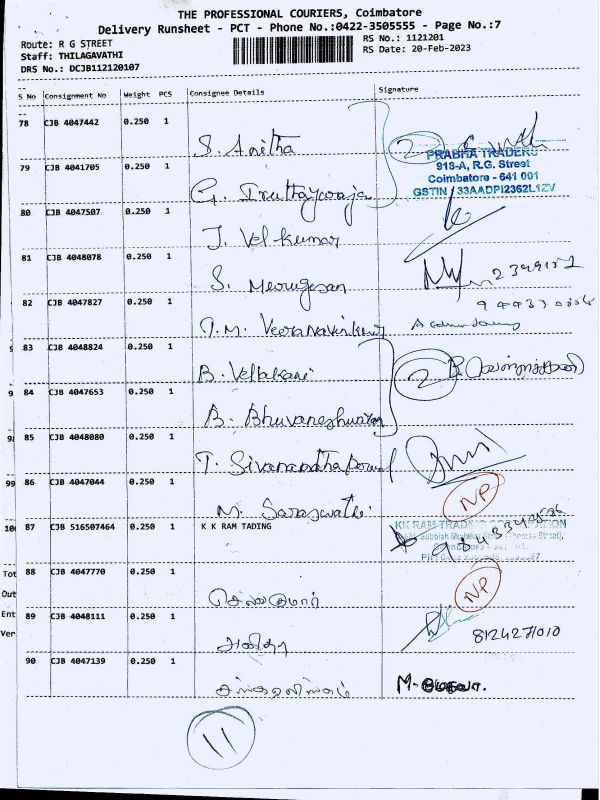 THE PROFESSIONAL COURIERS, Coimbatore
Delivery Runsheet - PCT - Phone No.:0422-3505555 - Page No.:7
Route: R G STREET
RS No.: 1121201
Staff: THILAGAVATHI
RS Date: 20-Feb-2023
DRS No.: DCJB112120107
S No Consignment No Weight PCS Consignee Details Signature
78 CJB 4047442 0.250 1
S. Anitha
2
PRABHA TRADERS
918-A, R.G. Street
Coimbatore - 641 001
GSTIN : 33AADPI2362L1ZV
79 CJB 4041705 0.250 1
G. Iruthayaraja
80 CJB 4047507 0.250 1
J. Vel kumar
81 CJB 4048078 0.250 1
S. Murugesan
82 CJB 4047827 0.250 1
83 CJB 4048824 0.250 1
B. Vellakani
2
84 CJB 4047653 0.250 1
B.
85 CJB 4048080 0.250 1
T.
86 CJB 4047044 0.250 1
M. Saraswathi
NP
87 CJB 516507464 0.250 1 K K RAM TADING
KK RAM TRADING CORPORATION
88 CJB 4047770 0.250 1
செல்வகுமார்
NP
89 CJB 4048111 0.250 1
அனிதா
8124271010
90 CJB 4047139 0.250 1
சங்கரலிங்கம்
11
99
100
Tot
Out
Ent
Ver